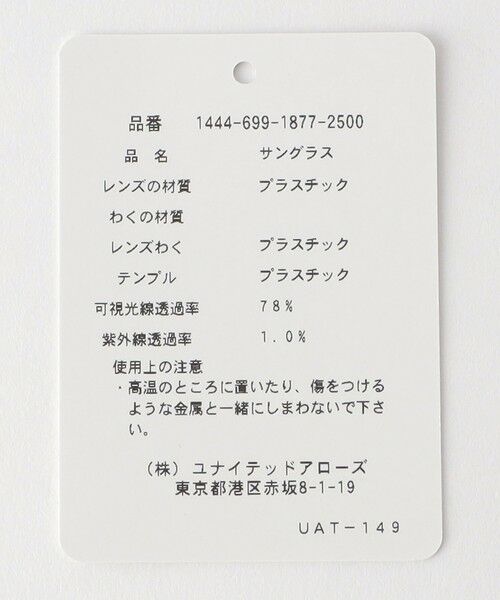 品番 1444-699-1877-2500
品 名 サングラス
レンズの材質 プラスチック
わくの材質
レンズわく プラスチック
テンプル プラスチック
可視光線透過率 78%
紫外線透過率 1.0%
使用上の注意
・高温のところに置いたり、傷をつける
ような金属と一緒にしまわないで下さ
い。
（株）ユナイテッドアローズ
東京都港区赤坂8-1-19
UAT-149